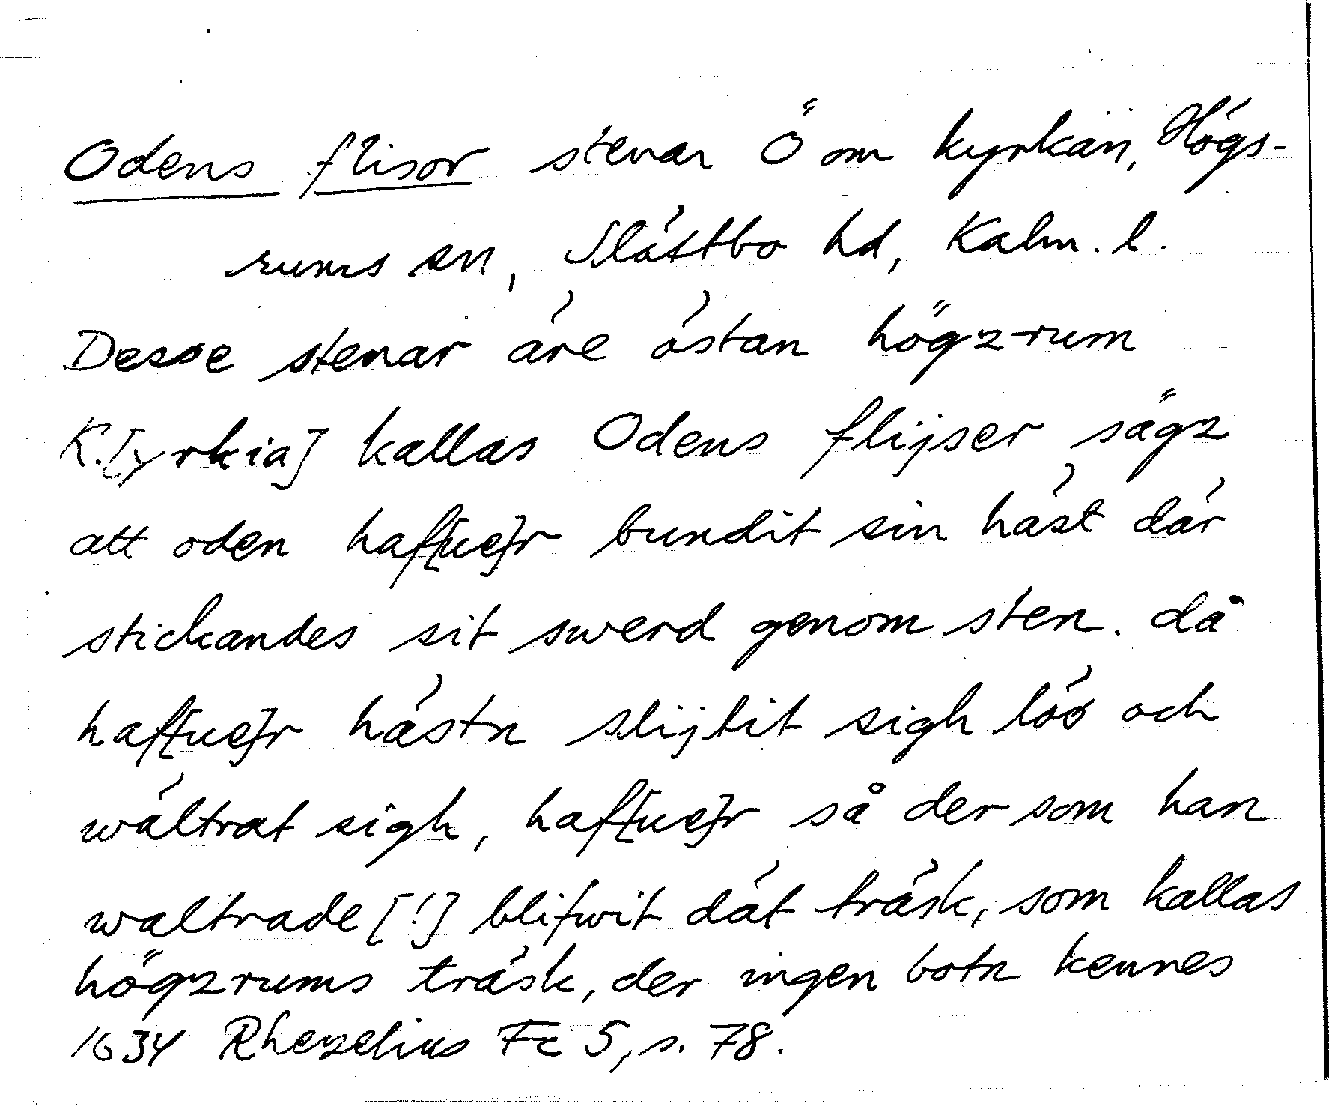 Odens flisor stenar Ö om kyrkan, Högs-
rums sn, Slättbo hd, Kalm. l.
Desse stenar äre östan högzrum
K.[yrkia] kallas Odens flijser sägz
att oden haf[ue]r bundit sin häst där
stickandes sit swerd genom sten. då
haf[ue]r hästn slijtit sigh löö och
wältrat sigh, haf[ue]r så der som han
waltrade [!] blifwit dät träsk, som kallas
högzrums träsk, der ingen botn kennes
1634 Rhezelius Fc 5, s. 78.